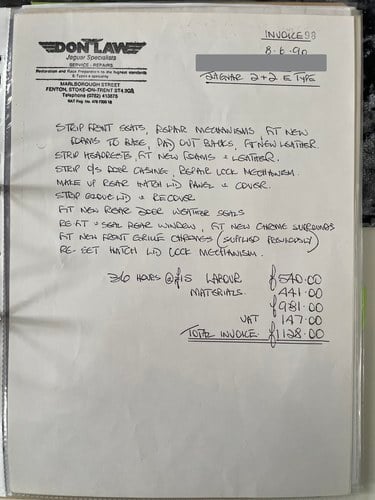 DON LAW
Jaguar Specialists
SERVICE - REPAIRS.
Restoration and Race Preparation to the highest standards
& Tuning a speciality
MARLBOROUGH STREET
FENTON, STOKE-ON-TRENT ST4
Telephone (0782) 413875
VAT Reg. No.
INVOICE 98
8.6.90
JAGUAR 2+2 E TYPE
STRIP FRONT SEATS, REPAIR MECHANISMS, FIT NEW
FOAMS TO BASE, PAD OUT BACKS, FIT NEW LEATHER.
STRIP HEADRESTS FIT NEW FOAMS & LEATHER.
STRIP O/S DOOR CASING, REPAIR LOCK MECHANISM.
MAKE UP REAR HATCH LID PANEL & COVER.
STRIP GLOVE LID & RECOVER
FIT NEW REAR DOOR WEATHER SEALS
RE-FIT & SEAL REAR WINDOW, FIT NEW CHROME SURROUNDS
FIT NEW FRONT GRILLE CHROMES (SUPPLIED PREVIOUSLY)
RE-SET HATCH LID LOCK MECHANISM.
36 HOURS @ £15 LABOUR £540.00
MATERIALS. 441.00
£981.00
VAT 147.00
TOTAL INVOICE. £1128.00